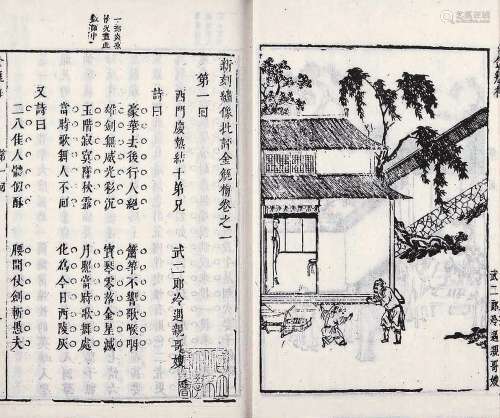 武二郎冷遇親哥嫂
新刻繡像批評金瓶梅卷之一
第一回
西門慶熱結十弟兄 武二郎冷遇親哥嫂
詩曰
豪華去後行人絕 簫箏不響歌喉咽
雄劍無威光彩沉 寶琴零落金星滅
玉階寂寞墜秋露 月照當時歌舞處
當時歌舞人不回 化為今日西陵灰
又詩曰
二八佳人體似酥 腰間仗劍斬愚夫
一部炎涼
景況盡此
數語中
第一回